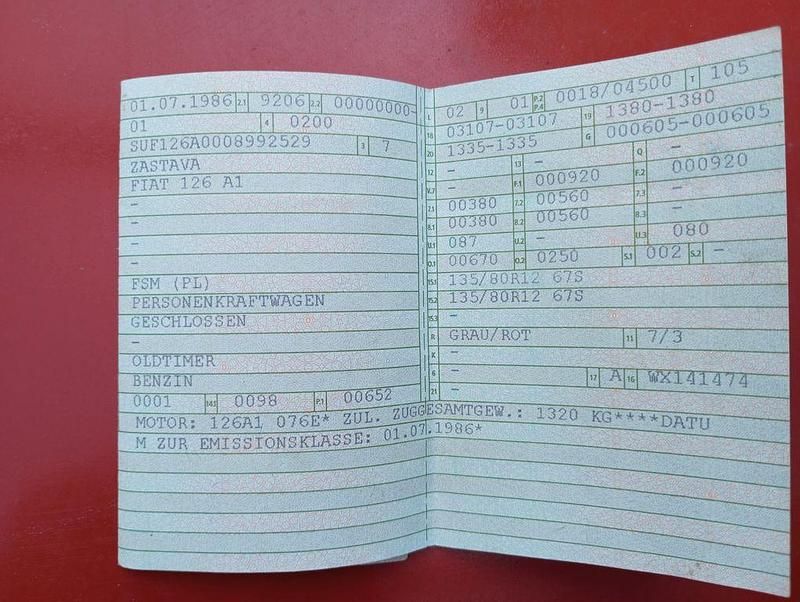 01.07.1986 2.1 9206 2.2 00000000-
01 4 0200
SUF126A0008992529 3 7
ZASTAVA
FIAT 126 A1
-
-
-
-
FSM (PL)
PERSONENKRAFTWAGEN
GESCHLOSSEN
-
OLDTIMER
BENZIN
0001 14.1 0098 P.1 00652
L 02 9 01 P.2 P.4 0018/04500 T 105
18 03107-03107 19 1380-1380
20 1335-1335 G 000605-000605
12 - 13 - Q -
V.7 - F.1 000920 F.2 000920
7.1 00380 7.2 00560 7.3 -
8.1 00380 8.2 00560 8.3 -
U.1 087 U.2 - U.3 080
O.1 00670 O.2 0250 S.1 002 S.2 -
15.1 135/80R12 67S
15.2 135/80R12 67S
15.3 -
R GRAU/ROT 11 7/3
K -
6 - 17 A 16 WX141474
21 -
MOTOR: 126A1 076E* ZUL. ZUGGESAMTGEW.: 1320 KG****DATU
M ZUR EMISSIONSKLASSE: 01.07.1986*